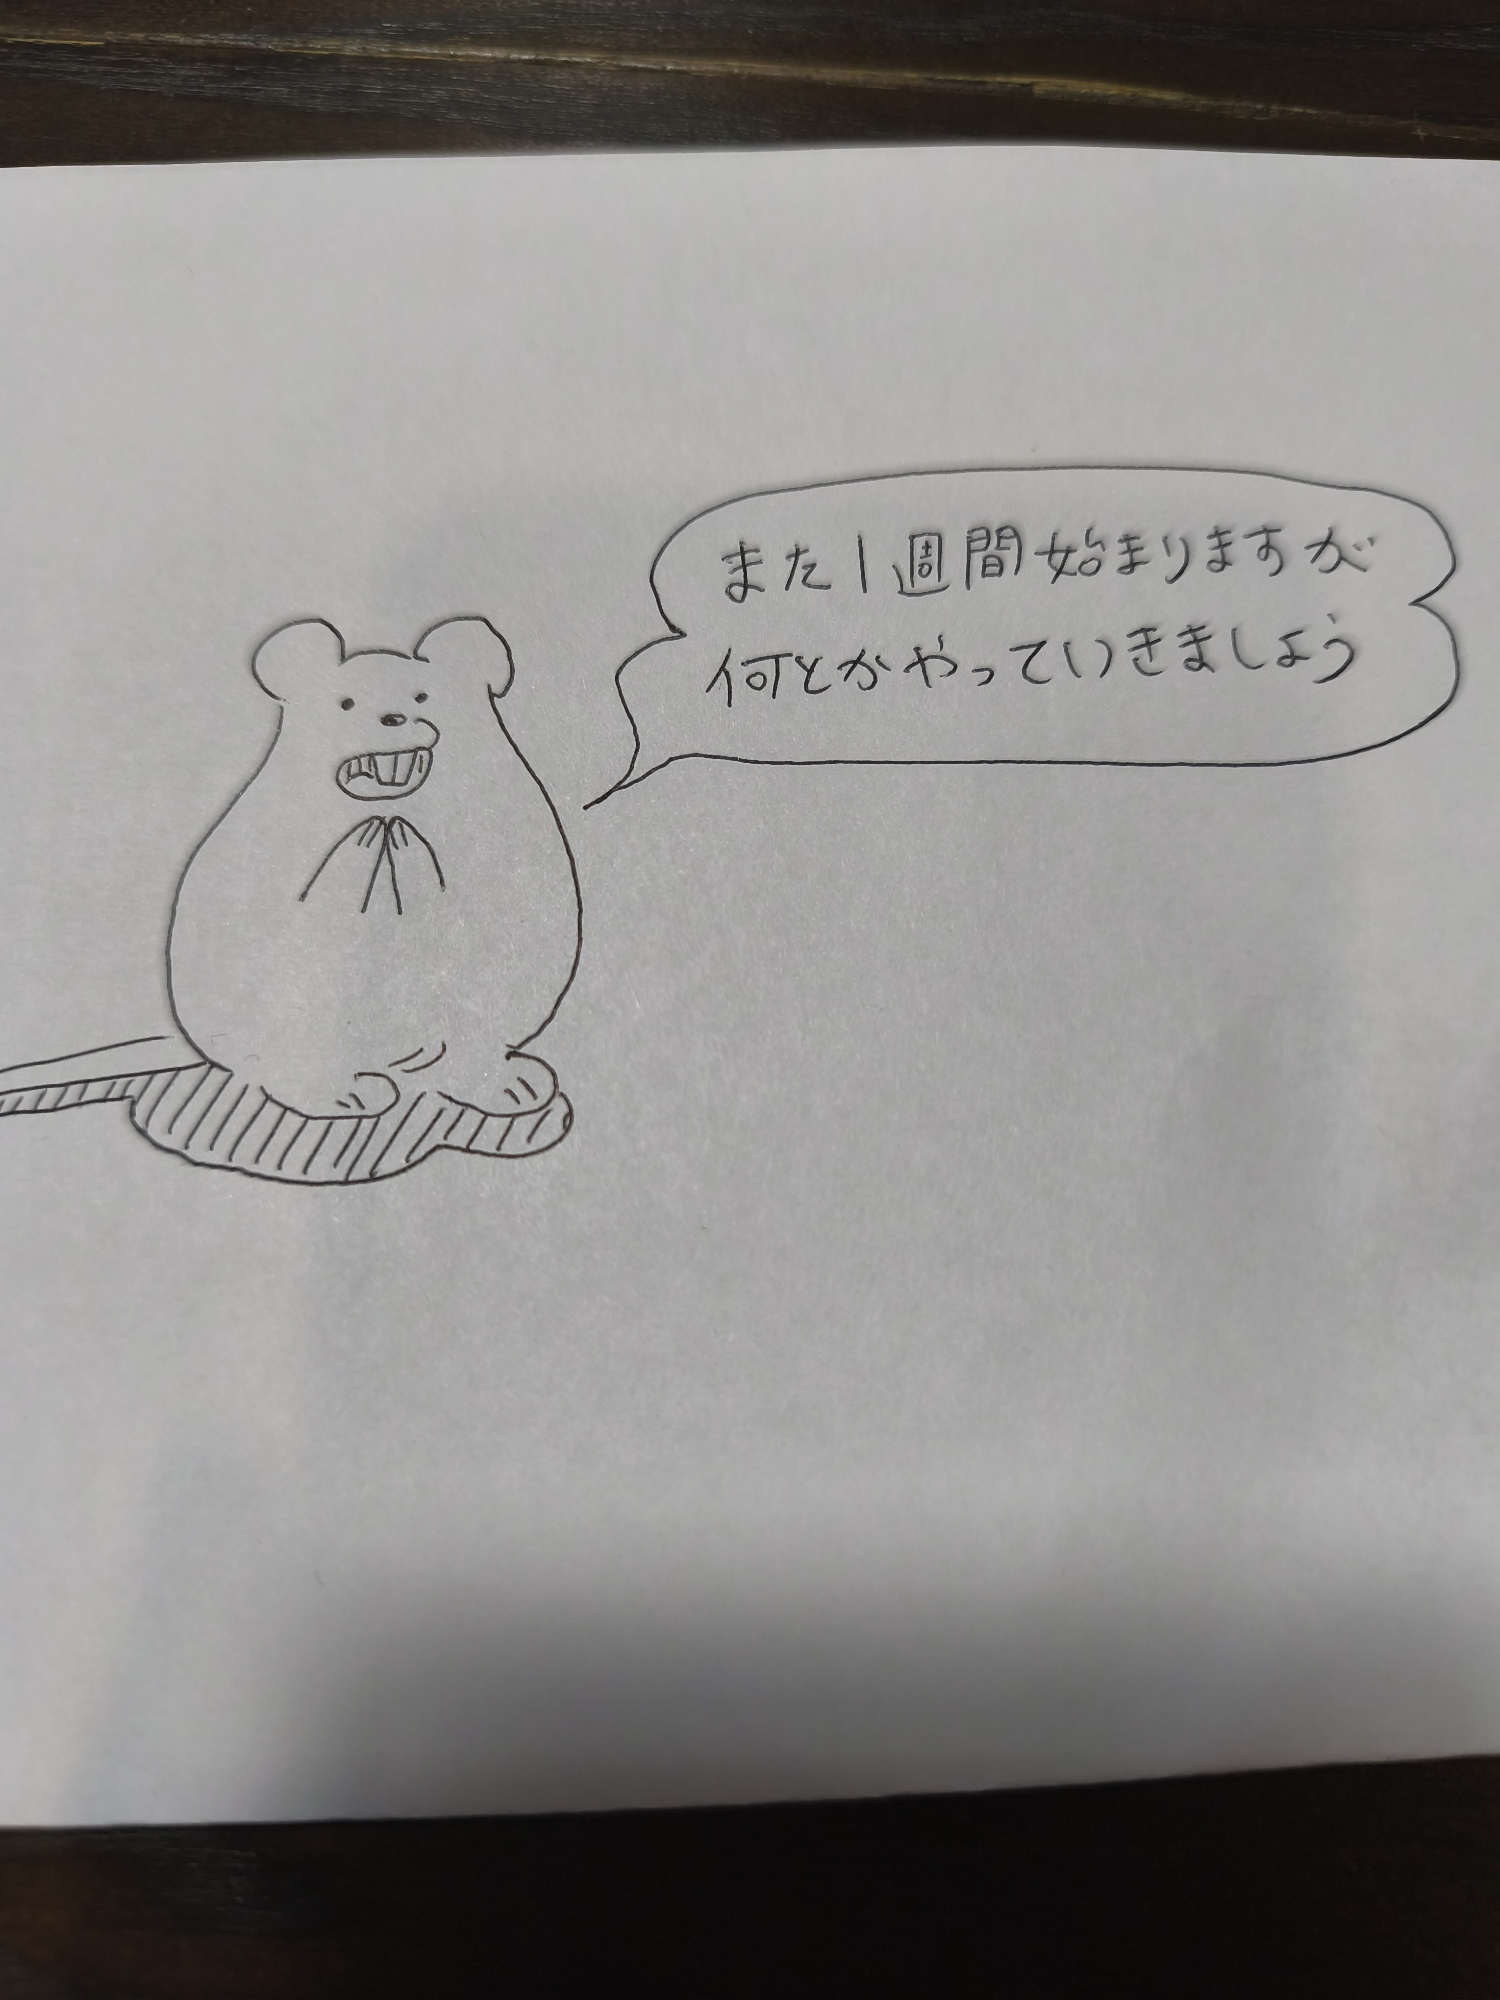 また1週間始まりますが
何とかやっていきましょう